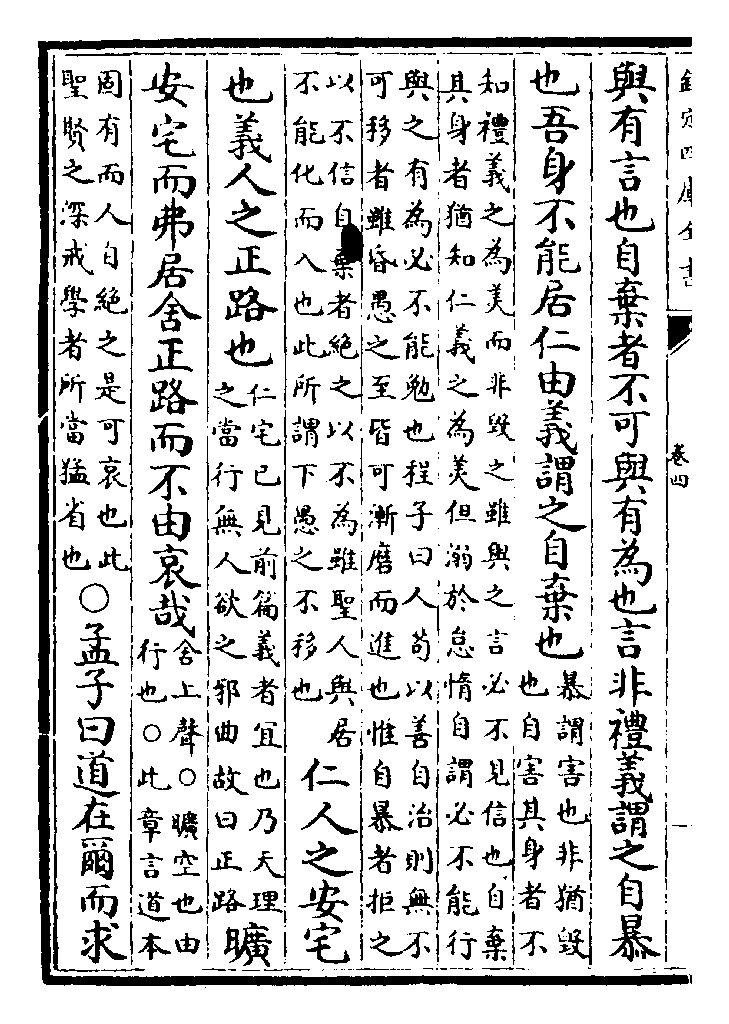 欽定四庫全書
卷四
與有言也自棄者不可與有為也言非禮義謂之自暴
也吾身不能居仁由義謂之自棄也
暴謂害也非猶毀
也自害其身者不
知禮義之為美而非毀之雖與之言必不見信也自棄
其身者猶知仁義之為美但溺於怠惰自謂必不能行
與之有為必不能勉也程子曰人苟以善自治則無不
可移者雖昏愚之至皆可漸磨而進也惟自暴者拒之
以不信自棄者絕之以不為雖聖人與居
不能化而入也此所謂下愚之不移也
仁人之安宅
也義人之正路也
仁宅已見前篇義者宜也乃天理
之當行無人欲之邪曲故曰正路
曠
安宅而弗居舍正路而不由哀哉
舍上聲○曠空也由
行也○此章言道本
固有而人自絕之是可哀也此
聖賢之深戒學者所當猛省也
○孟子曰道在爾而求